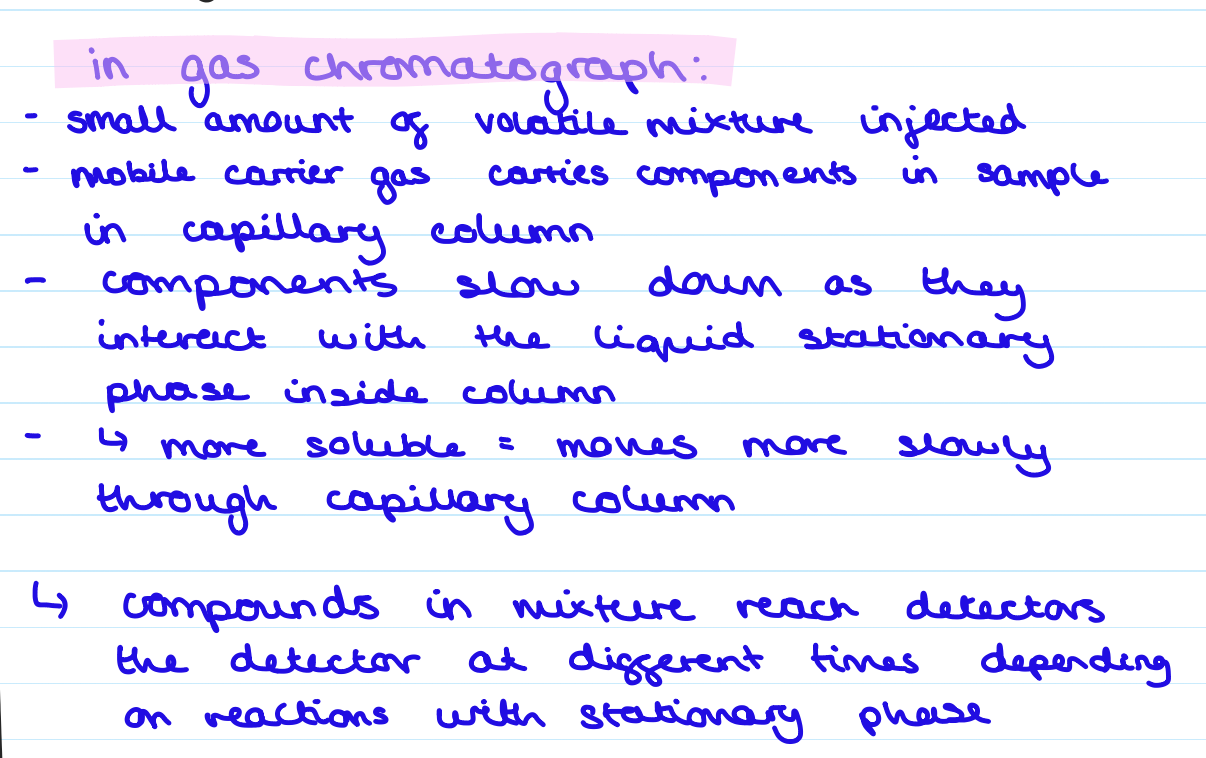 in gas chromatograph:
- small amount of volatile mixture injected
- mobile carrier gas carries components in sample
in capillary column
- components slow down as they
interact with the liquid stationary
phase inside column
- ↳ more soluble = moves more slowly
through capillary column
↳ compounds in mixture reach detectors
the detector at different times depending
on reactions with stationary phase